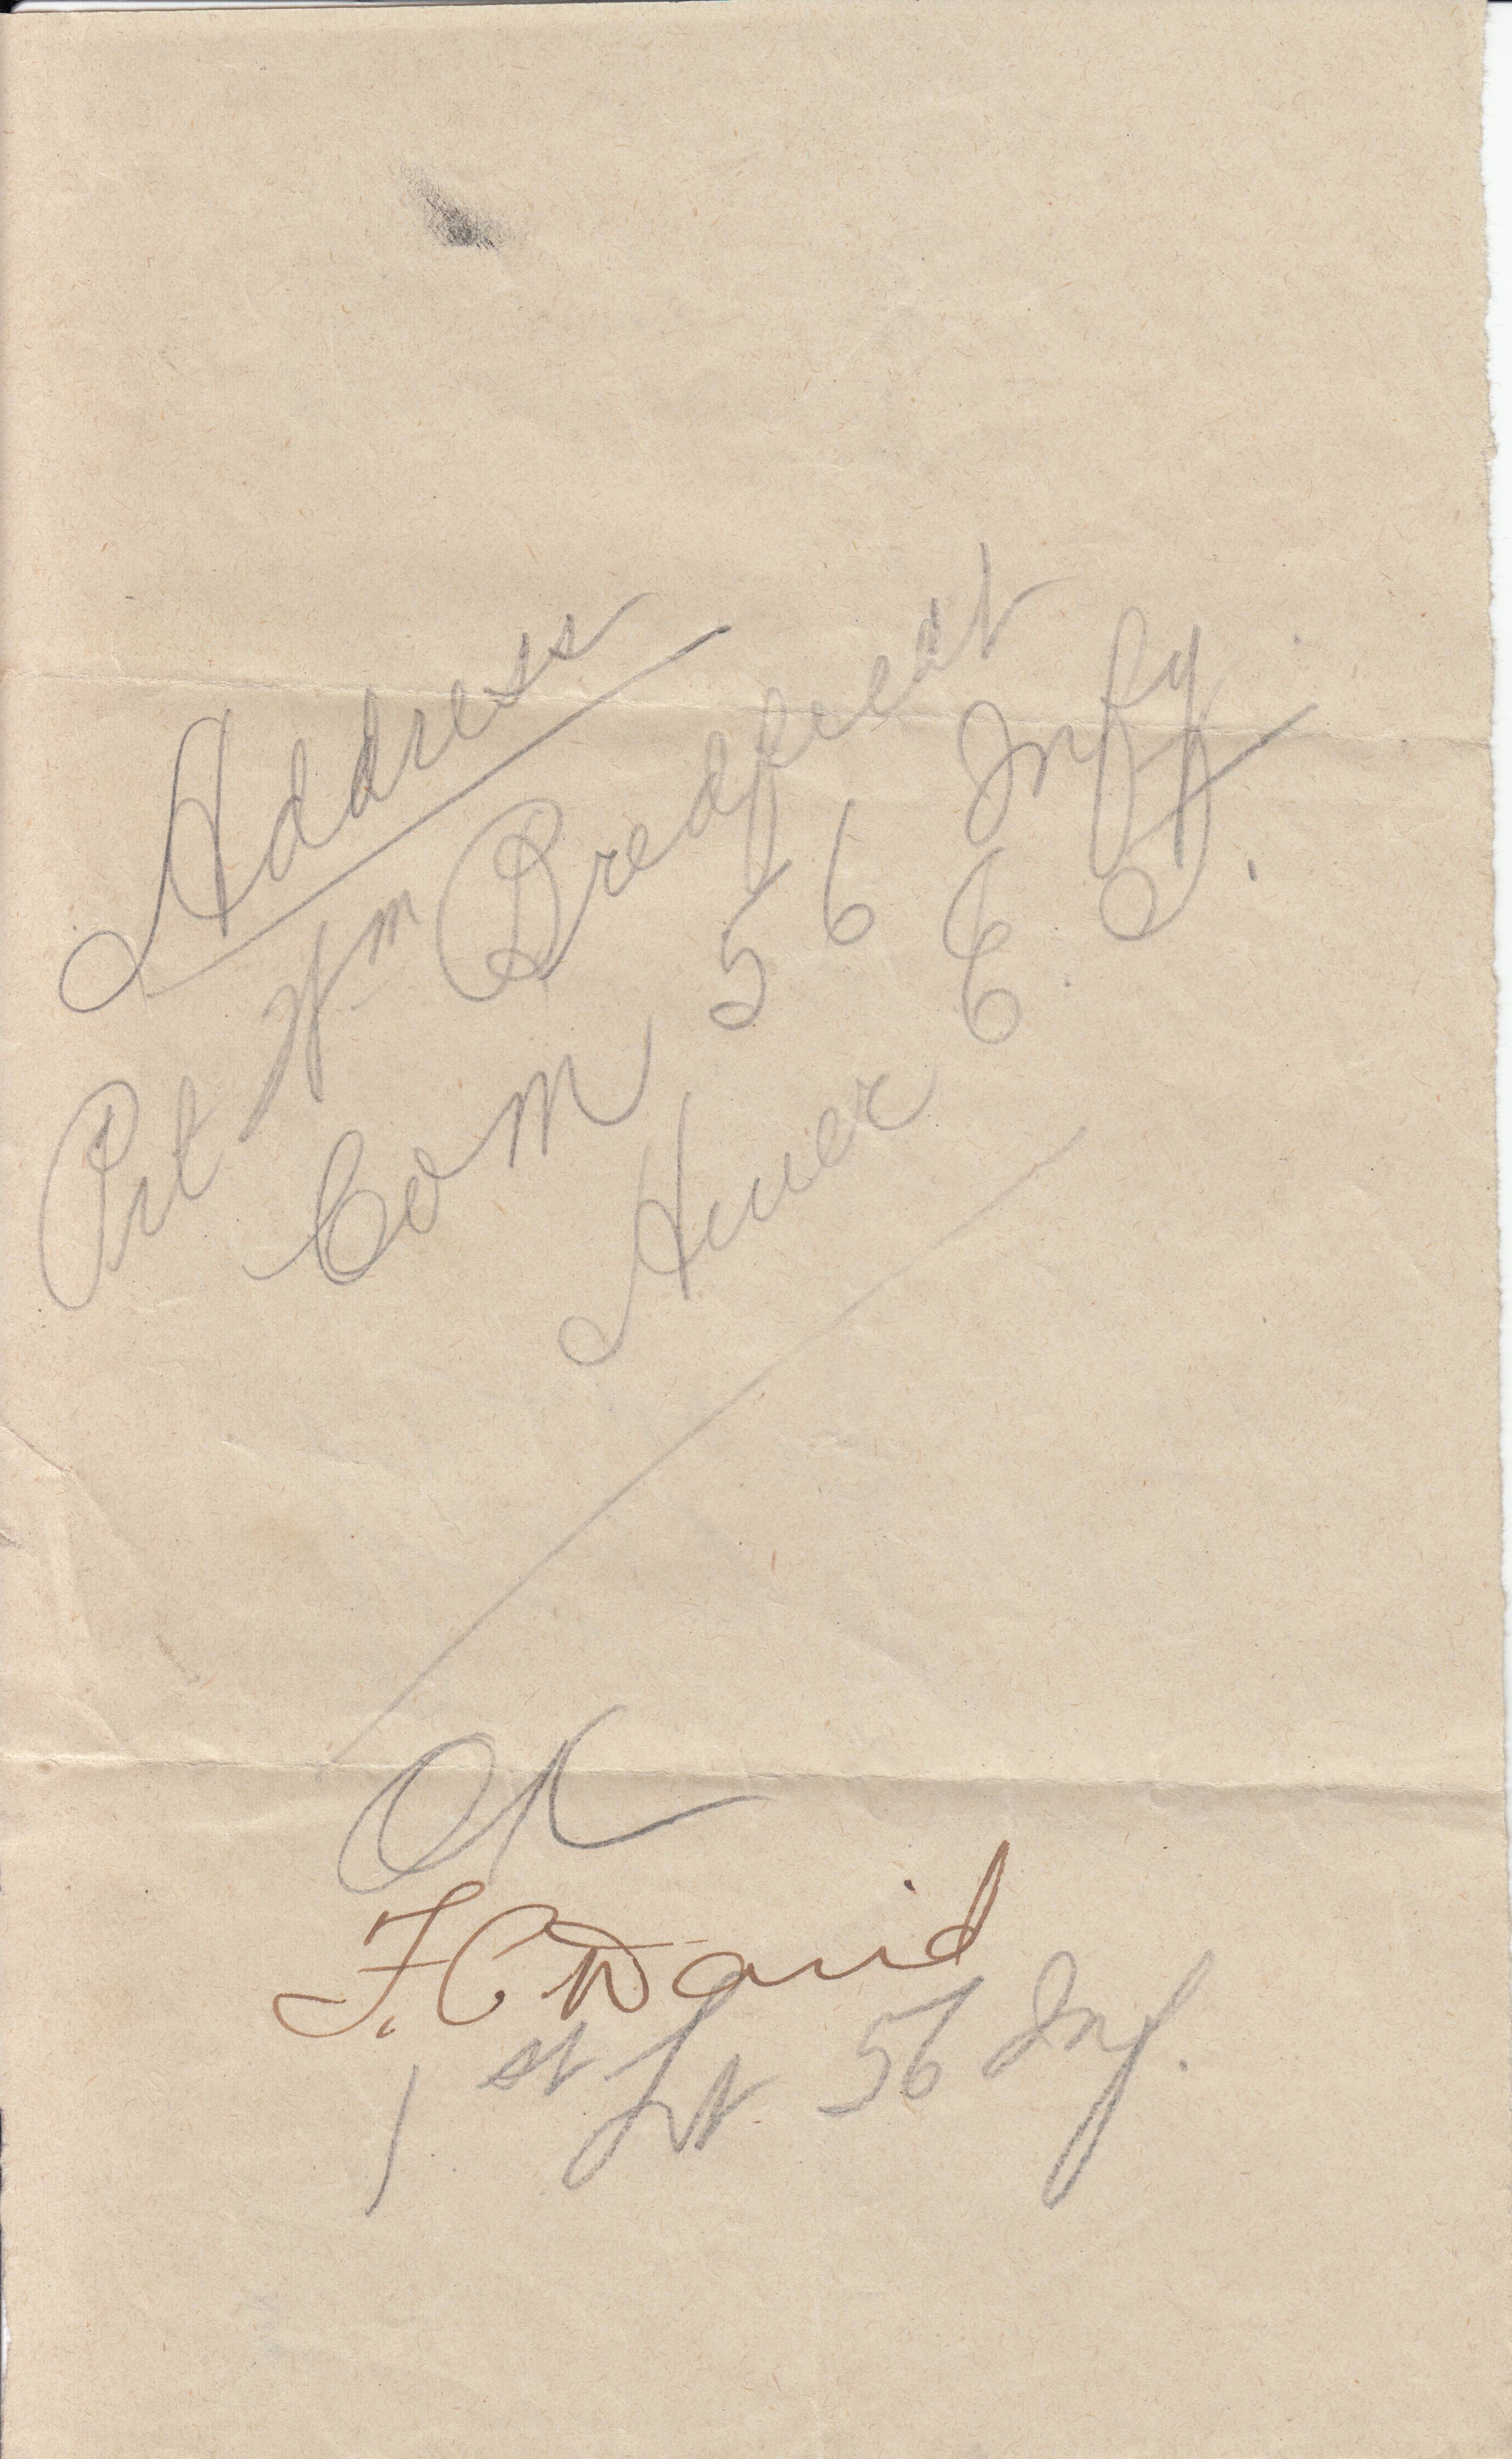 Address
Pvt Wm Bredfeldt
Com M 56 Infy
Amer E. F.
OK
F. C. David
1st Lt 56 Inf.